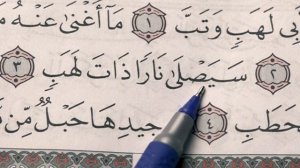 بِي لَهَبٍ وَتَبَّ ١ مَآ أَغْنَىٰ عَنْهُ
٢ سَيَصْلَىٰ نَارًا ذَاتَ لَهَبٍ ٣
حَطَبِ ٤ جِيدِهَا حَبْلٌ مِّن